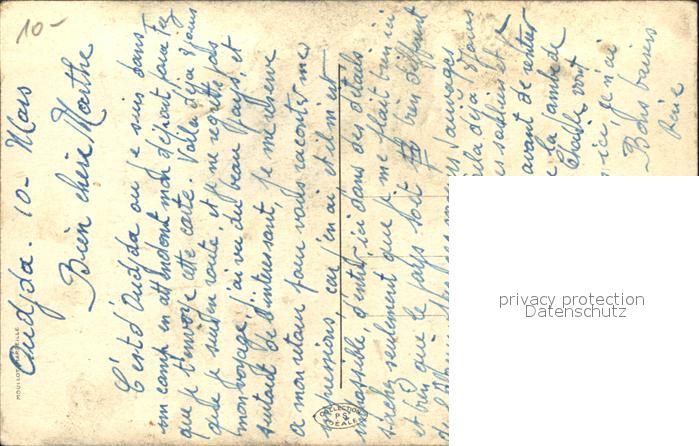 10-
Oudjda. 10- Mars
Bien chère Marthe
C'est d'Oudjda où je suis dans
un camp en attendant mon départ pour Fez
que je t'envoie cette carte. Voilà déjà 8 jours
que je suis en route, et je ne regrette pas
mon voyage, j'ai vu du beau pays, et
autant de intéressant, je me réserve
a mon retour pour vous raconter mes
impressions, car j'en ai et il m'est
impossible d'entrer ici dans des détails
sachez seulement que je me plait bien ici
et bien que le pays soit bien différent
sauvages
déjà jours
souliers et
avant de rester
la jambe de
Charles vont
ici, je n'ai
Bons baisers
René
MOULLOT MARSEILLE
COLLECTION
PS
IDÉALE
privacy protection
Datenschutz